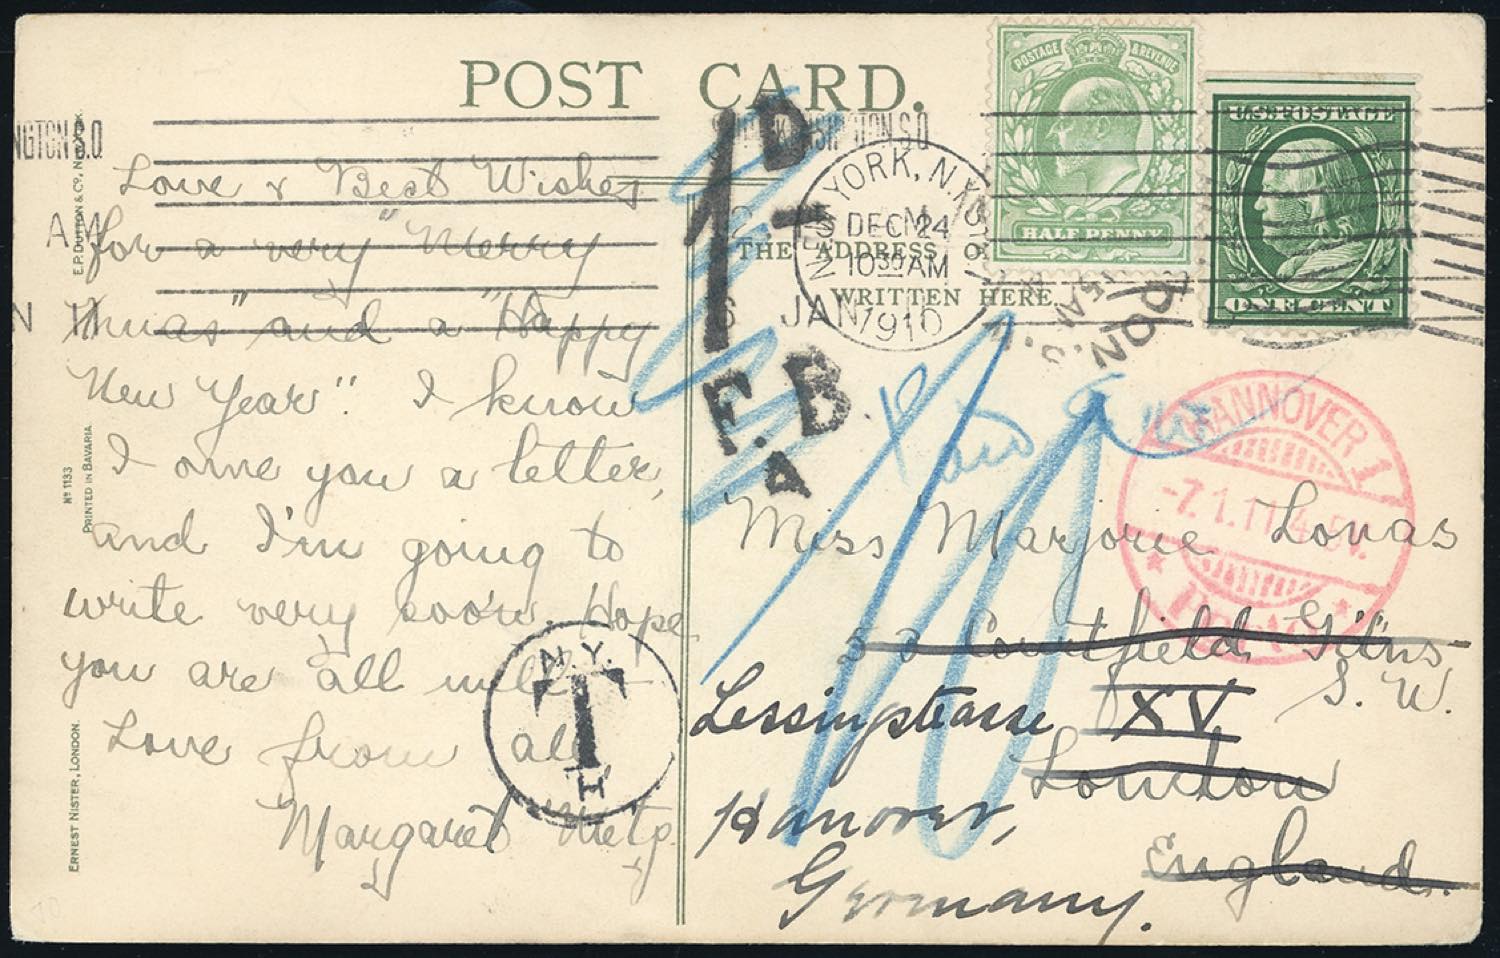 POST CARD.
THE ADDRESS
WRITTEN HERE.
POSTAGE & REVENUE
HALF PENNY
U.S. POSTAGE
ONE CENT
NEW YORK, N.Y.
DEC 24
10 30 AM
1910
NGTON S.O
AM
JAN
1D
F.B
A
HANNOVER 1
-7.1.11.
N.Y.
T
H
Love & Best Wishes
for a very "Merry
Xmas" and a "Happy
New Year". I know
I owe you a letter,
and I'm going to
write very soon. Hope
you are all well
Love from all
Margaret
Miss Marjorie
S.W.
Lessingstrasse XV
London
Hanover,
England.
Germany.
E.P. DUTTON & CO, NEW YORK.
No 1133
PRINTED IN BAVARIA
ERNEST NISTER, LONDON.